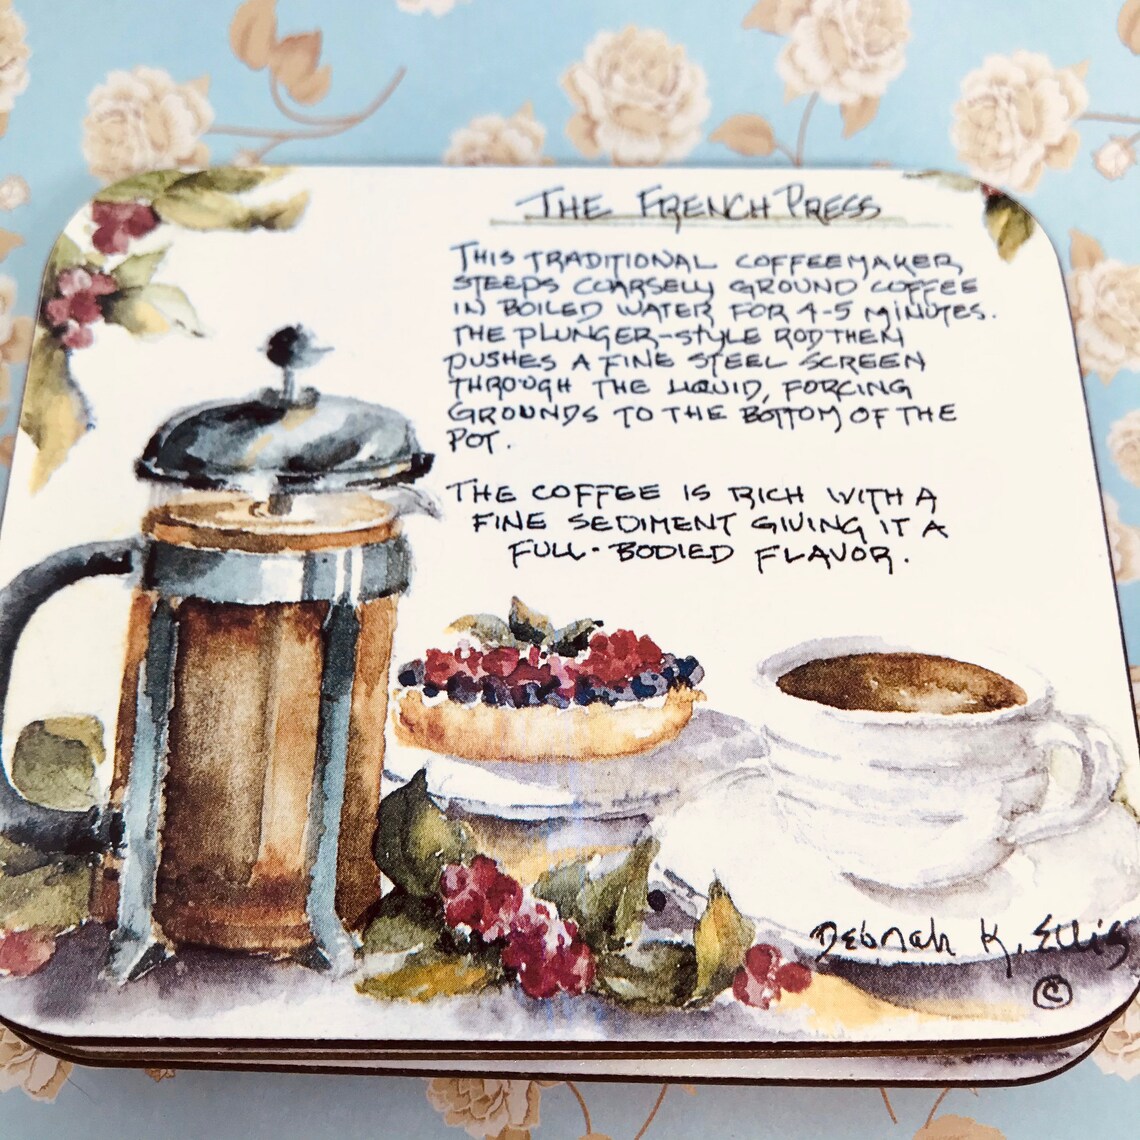 THE FRENCH PRESS
THIS TRADITIONAL COFFEEMAKER
STEEPS COARSELY GROUND COFFEE
IN BOILED WATER FOR 4-5 MINUTES.
THE PLUNGER-STYLE ROD THEN
PUSHES A FINE STEEL SCREEN
THROUGH THE LIQUID, FORCING
GROUNDS TO THE BOTTOM OF THE
POT.
THE COFFEE IS RICH WITH A
FINE SEDIMENT GIVING IT A
FULL-BODIED FLAVOR.
DEBORAH K. ELLIS
©